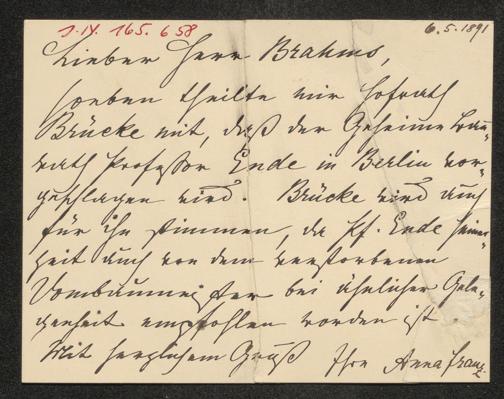 J.N. 165.658
6.5.1891
Lieber Herr Brahms,
soeben theilte mir Hofrath
Brücke mit, daß der Geheime Bau-
rath Professor Ende in Berlin vor-
geschlagen wird. Brücke wird auch
für ihn stimmen, da Hr. Ende seiner-
zeit auch von dem verstorbenen
Dombaumeister bei ähnlicher Gele-
genheit empfohlen worden ist.
Mit herzlichem Gruß Ihre Anna Franz.